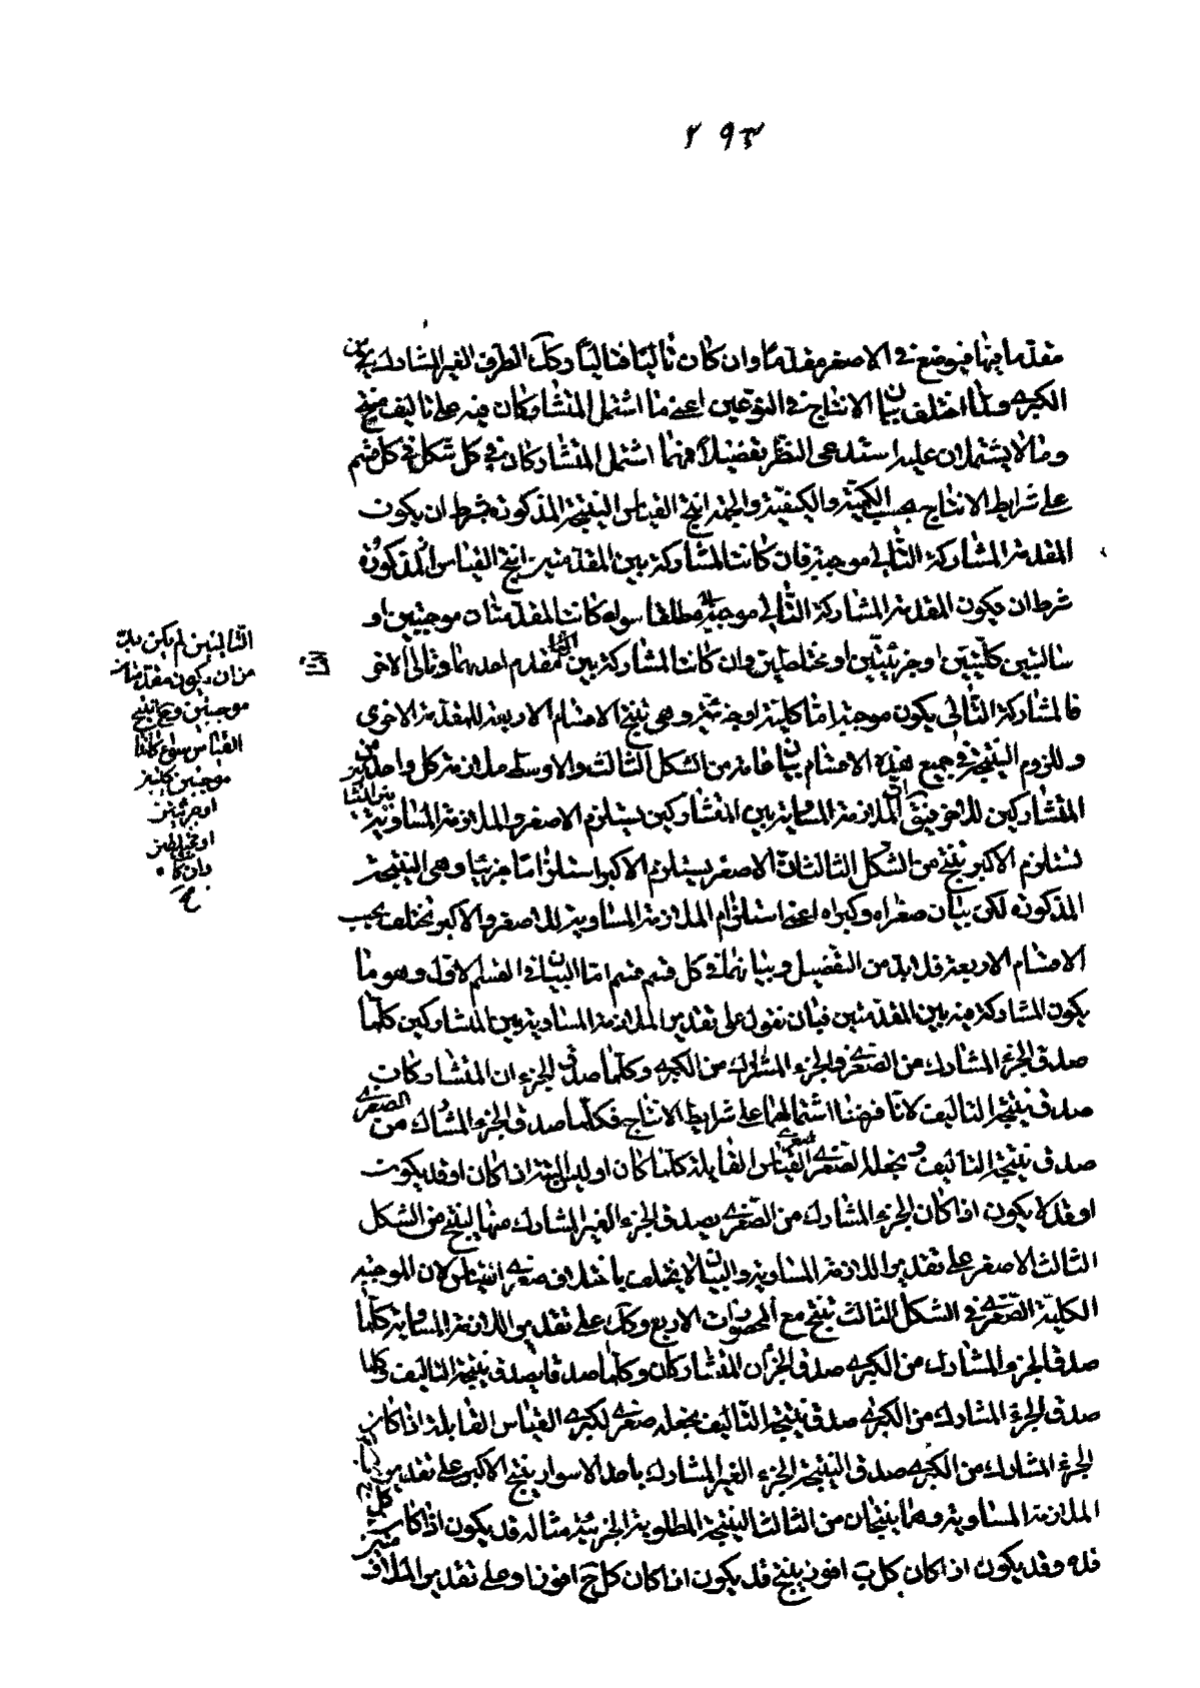 ٢٩٣
مقدما فيها فيوضع في الاصغر مقدما وان كان تاليا فتاليا وكك الطرف الغير المشارك من
الكبرى ولما اختلف بيان الانتاج في النوعين اعني ما اشتمل المتشاركان فيه على تاليف منتج
وما لا يشتملان عليه استدعى النظر تفصيلا فمهما اشتمل المتشاركان في كل شكل في كل قسم
على شرايط الانتاج بحسب الكمية والكيفية والجهة انتج القياس النتيجة المذكورة بشرط ان يكون
المقدمة المشاركة التالي موجبة فان كانت المشاركة بين المقدمتين انتج القياس المذكورة
شرط ان يكون المقدمة المشاركة التالي موجبة مطلقا سواء كانت المقدمتان موجبتين او
سالبتين كليتين او جزئيتين او مختلطتين وان كانت المشاركة بين مقدم احدهما وتالي الاخرى
فالمشاركة التالى يكون موجبة اما كلية او جزئية وهى تنتج الاقسام الاربعة للمقدمة الاخرى
وللزوم النتيجة في جميع هذه الاقسام بيان عام من الشكل الثالث والاوسط ملازمة كل واحد من
المتشاركين للاخر فنقول ان الملازمة المساوية بين المتشاركين يستلزم الاصغر والملازمة المساوية
تستلزم الاكبر ينتج من الشكل الثالث ان الاصغر يستلزم الاكبر استلزاما جزئيا وهى النتيجة
المذكورة لكن بيان صغراه وكبراه اعني استلزام الملازمة المساوية للاصغر والاكبر تختلف بحسب
الاقسام الاربعة فلا بد من التفصيل وبيانهما في كل قسم قسم اما البيان في القسم الاول وهو ما
يكون المشاركة فيه بين المقدمتين فبان نقول على تقدير الملازمة المساوية بين المتشاركين كلما
صدق الجزء المشارك من الصغرى والجزء المشارك من الكبرى وكلما صدق الجزءان المتشاركان
صدق نتيجة التاليف لانا فرضنا اشتمالهما على شرايط الانتاج فكلما صدق الجزء المشارك من الصغرى
صدق نتيجة التاليف ونجعله لصغرى القياس القايلة كلما كان او ليس البتة اذا كان او قد يكون
او قد لا يكون اذا كان الجزء المشارك من الصغرى يصدق الجزء الغير المشارك منها لينتج من الشكل
الثالث الاصغر على تقدير الملازمة المساوية والبيان لا يختلف باختلاف صغرى القياس لان الموجبة
الكلية الصغرى في الشكل الثالث تنتج مع المحصورات الاربع وكك على تقدير الملازمة المساوية كلما
صدق الجزء المشارك من الكبرى صدق الجزءان المتشاركان وكلما صدقا يصدق نتيجة التاليف فكلما
صدق الجزء المشارك من الكبرى صدق نتيجة التاليف نجعله صغرى لكبرى القياس القايلة اذا كان
الجزء المشارك من الكبرى صدق النتيجة الجزء الغير المشارك باحد الاسوار ينتج الاكبر على تقدير
الملازمة المساوية وهما ينتجان من الثالث النتيجة المطلوبة الجزئية مثاله قد يكون اذا كان كل
فده وقد يكون اذا كان كل ب افوز ينتج قد يكون اذا كان كل ج افوز وعلى تقدير
التالبتين لم يكن بد
من ان يكون مقدمتاه
موجبتين وح ينتج
القياس سواء كانتا
موجبتين كليتين
او جزئيتين
او مختلطتين
وان كانت